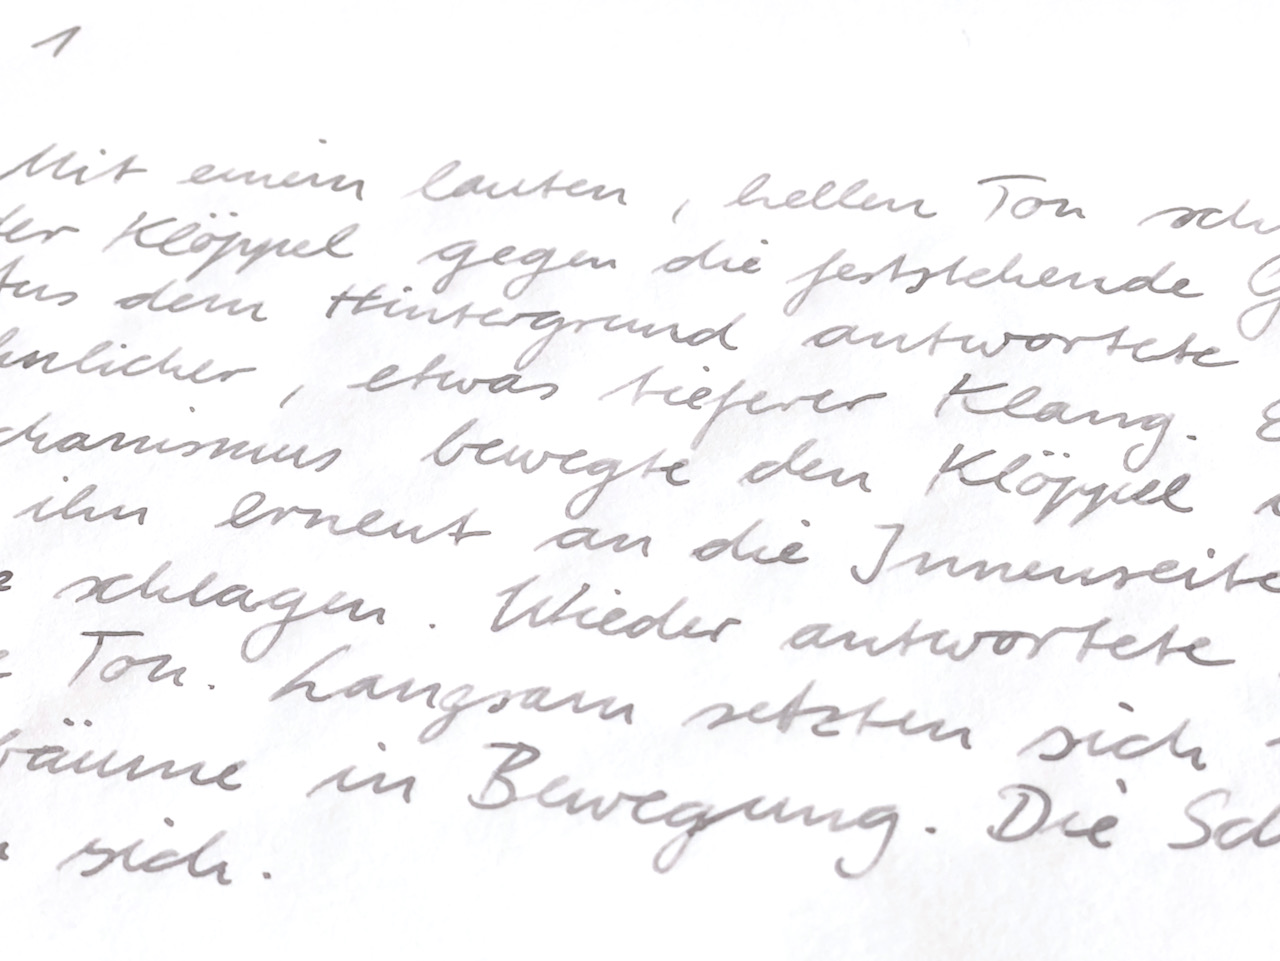 1
Mit einem lauten, hellen Ton
der Klöppel gegen die feststehende
Aus dem Hintergrund antwortete
etwas tieferer Klang.
bewegte den Klöppel
ihn erneut an die Innenseite
schlagen. Wieder antwortete
Ton. Langsam setzten sich
in Bewegung. Die
sich.